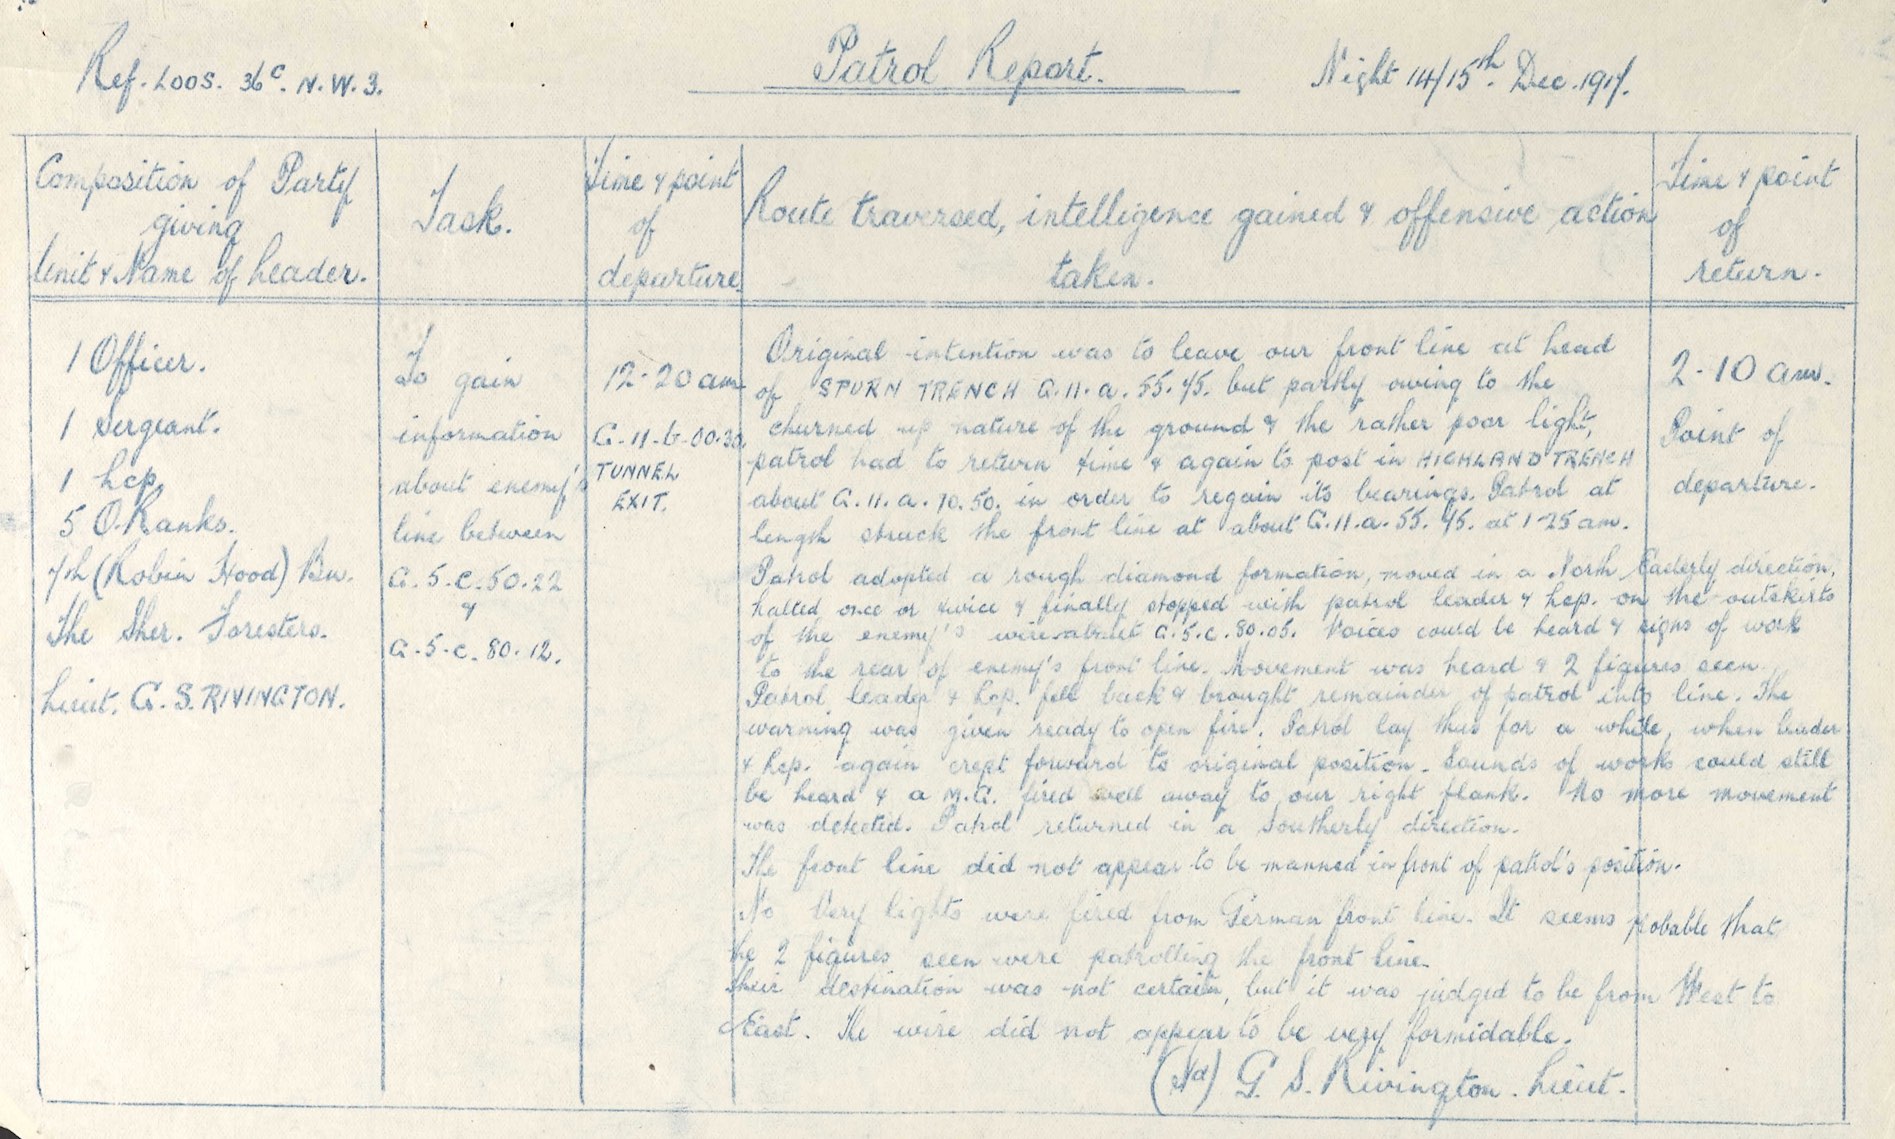 Ref. LOOS. 36c. N.W.3.
Patrol Report.
Night 14/15th Dec. 1917.
Composition of Party
giving
Unit & Name of Leader.
Task.
Time & point
of
departure.
Route traversed, intelligence gained & offensive action
taken.
Time & point
of
return.
1 Officer.
1 Sergeant.
1 Lcp.
5 O.Ranks.
7th (Robin Hood) Bn.
The Sher. Foresters.
Lieut. G. S. RIVINGTON.
To gain
information
about enemy's
line between
G.5.c.50.22
&
G.5.c.80.12.
12-20 am.
G.11.b.00.30.
TUNNEL
EXIT.
Original intention was to leave our front line at head
of SPURN TRENCH G.11.a.55.45. but partly owing to the
churned up nature of the ground & the rather poor light,
patrol had to return time & again to post in HIGHLAND TRENCH
about G.11.a.70.50. in order to regain its bearings. Patrol at
length struck the front line at about G.11.a.55.45. at 1-25 am.
Patrol adopted a rough diamond formation, moved in a North Easterly direction,
halted once or twice & finally stopped with patrol leader & Lcp. on the outskirts
of the enemy's wire about G.5.c.80.05. Voices could be heard & signs of work
to the rear of enemy's front line. Movement was heard & 2 figures seen.
Patrol leader & Lcp. fell back & brought remainder of patrol into line. The
warning was given ready to open fire. Patrol lay thus for a while, when leader
& Lcp. again crept forward to original position. Sounds of work could still
be heard & a M.G. fired well away to our right flank. No more movement
was detected. Patrol returned in a Southerly direction.
The front line did not appear to be manned in front of patrol's position.
No Very lights were fired from German front line. It seems probable that
the 2 figures seen were patrolling the front line.
Their destination was not certain, but it was judged to be from West to
East. The wire did not appear to be very formidable.
(Sd) G. S. Rivington. Lieut.
2-10 am.
Point of
departure.